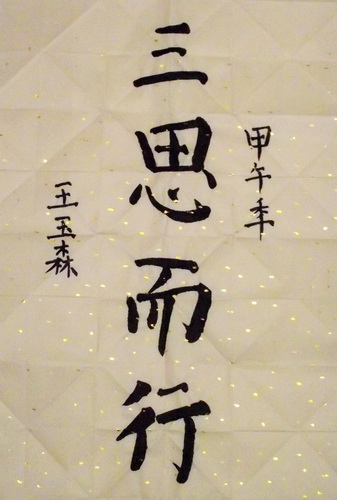 甲午年
三思而行
王玉森